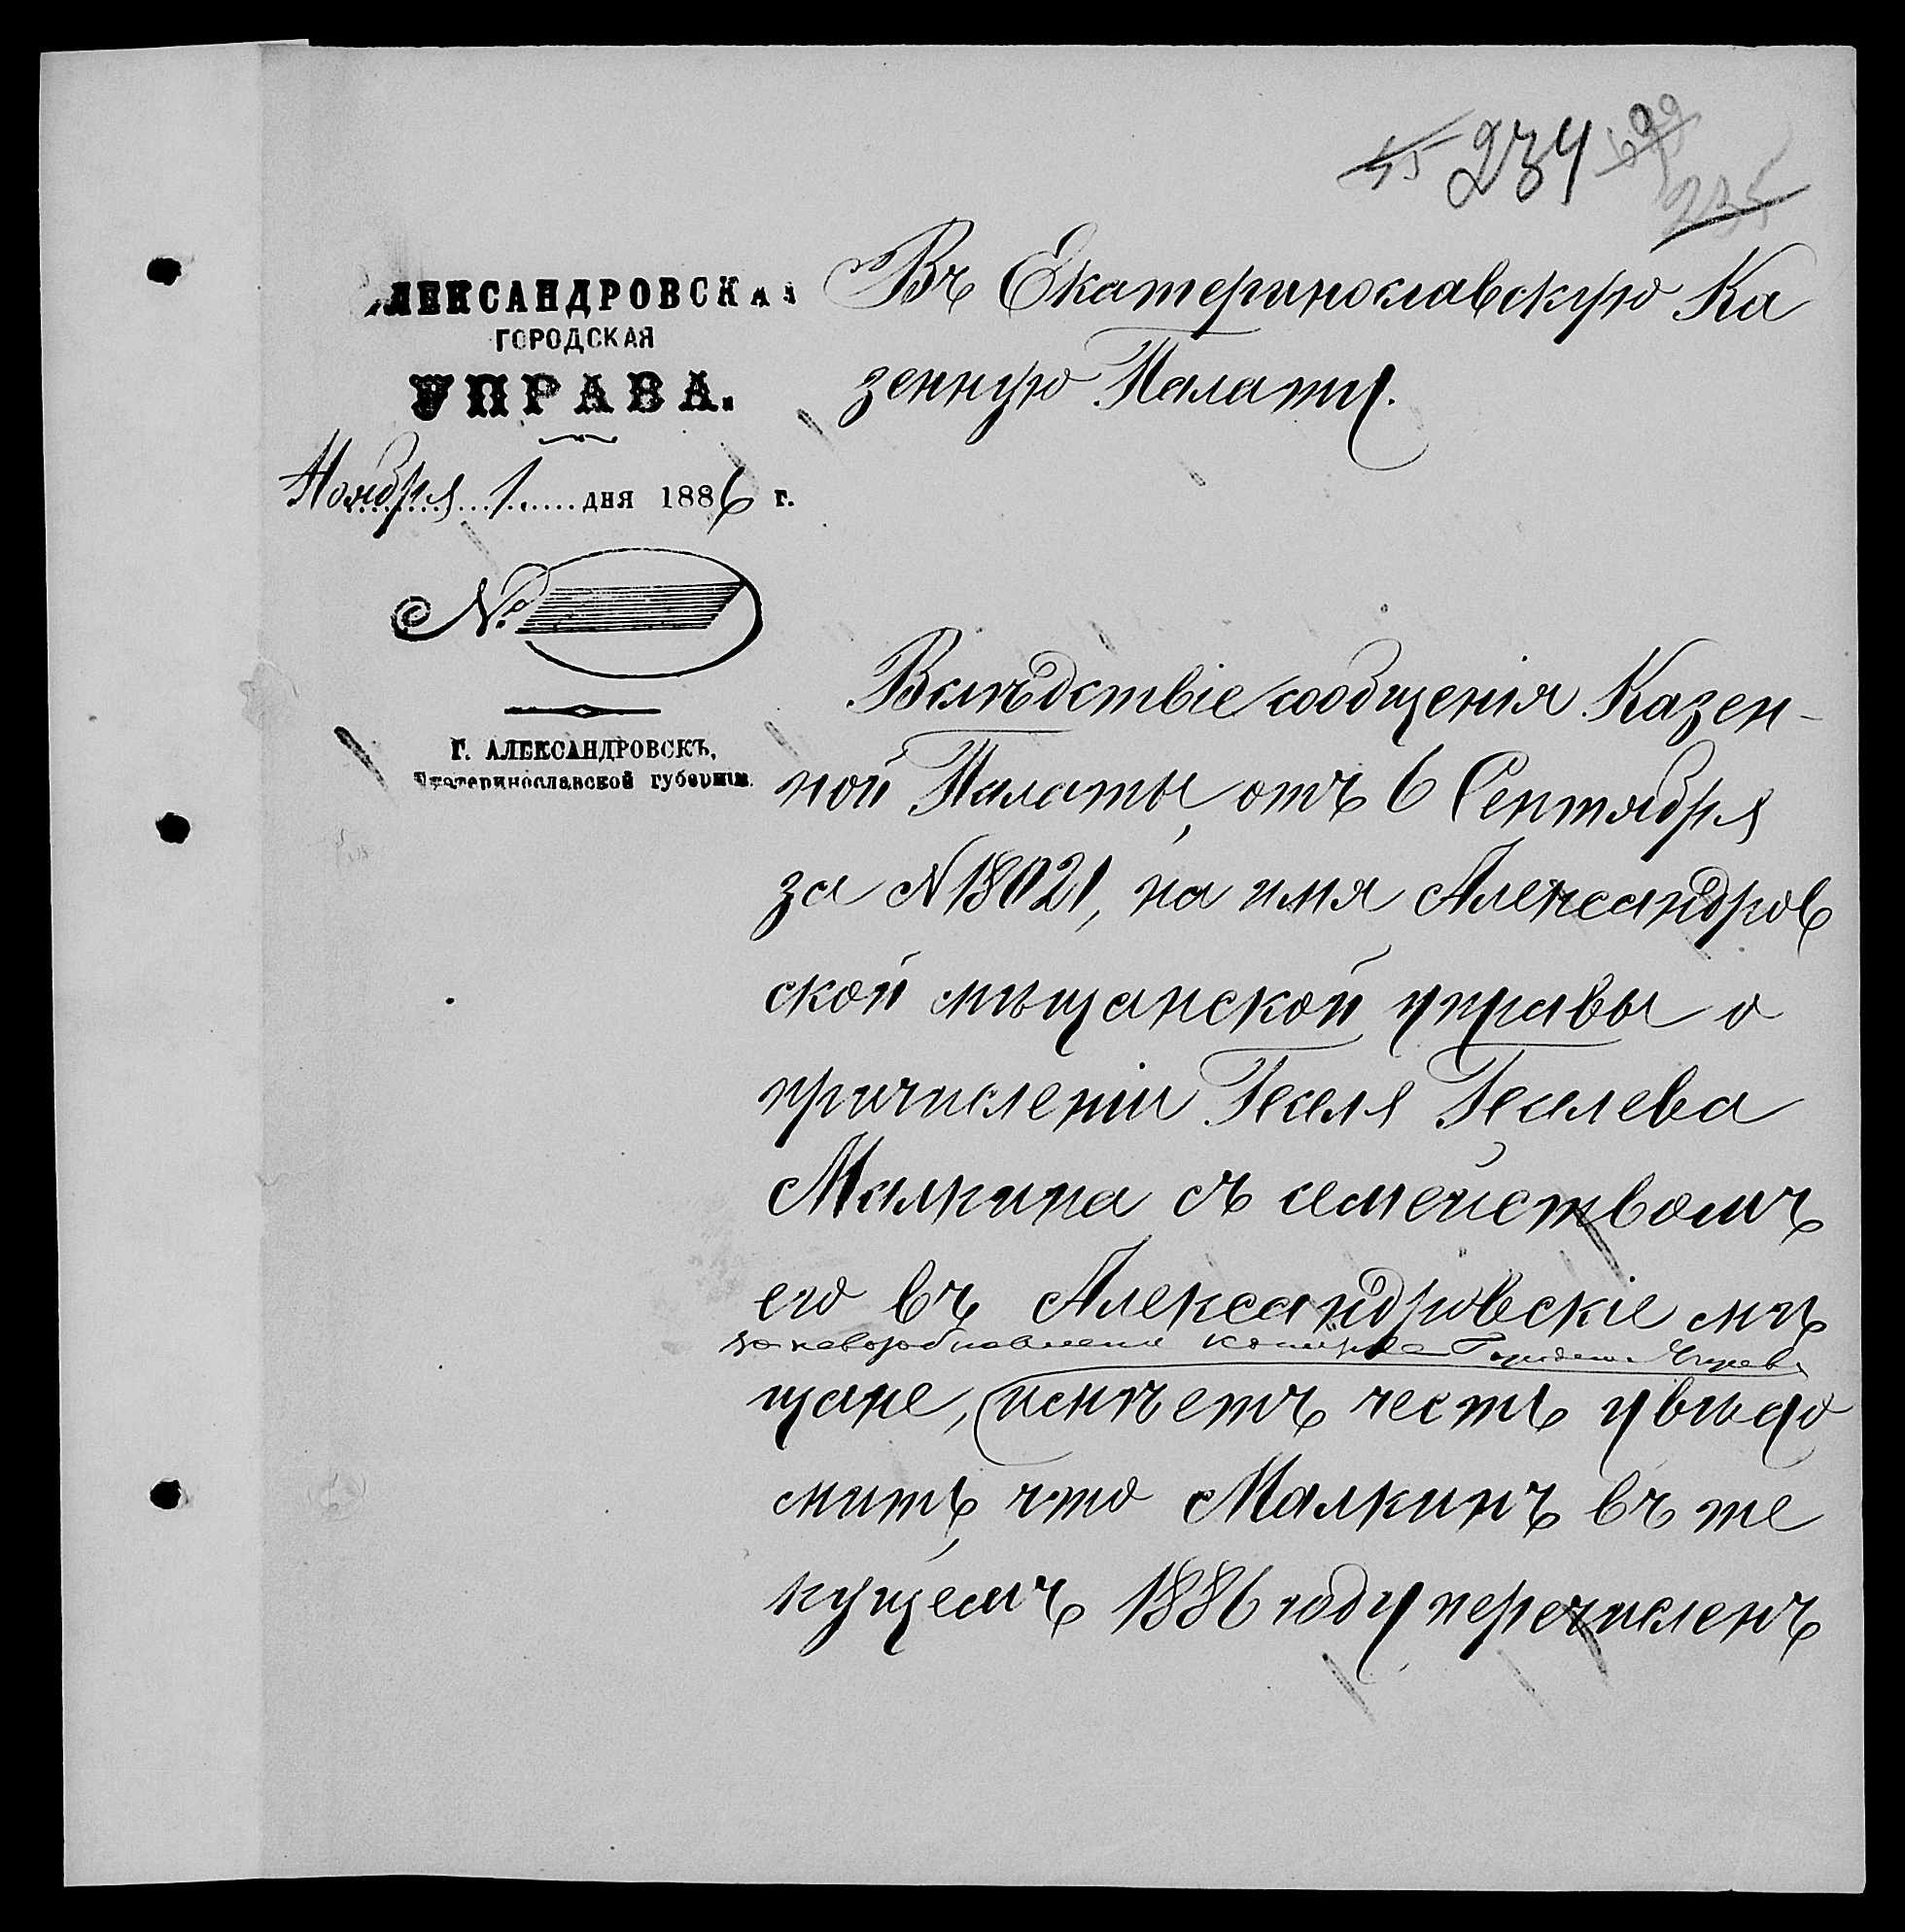 45 234
235
АЛЕКСАНДРОВСКАЯ
ГОРОДСКАЯ
УПРАВА.
Ноября 1 дня 1886 г.
№
Г. АЛЕКСАНДРОВСКЪ,
Екатеринославской губерніи.
Въ Екатеринославскую Ка
зенную Палату.
Вслѣдствіе сообщенія Казен-
ной Палаты, отъ 6 Сентября
за № 18021, на имя Александров
ской мѣщанской управы о
причисленіи Геселя Геселева
Малкина съ семействомъ
его въ Александровскіе мѣ
щане, имѣетъ честь увѣдо
мить, что Малкинъ въ те
кущемъ 1886 году перечисленъ